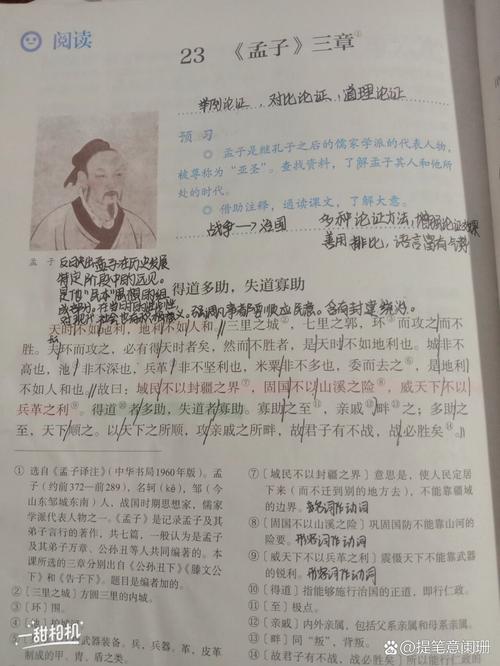 阅读
23 《孟子》三章①
举例论证，对比论证，道理论证
预习
◎ 孟子是继孔子之后的儒家学派的代表人物，
被尊称为“亚圣”。查找资料，了解孟子其人和他所
处的时代。
◎ 借助注释，通读课文，了解大意。
战争→治国
多种论证方法，增强论证效果
善用排比，语言富有气势
孟 子
反映出孟子在历史发展
特定阶段中的远见。
是其“民本”思想的组
强调凡事都要顺应民意。含有封建统治。
得道多助，失道寡助
天时不如地利，地利不如人和。三里之城②，七里之郭，环③而攻之而不
胜。夫环而攻之，必有得天时者矣，然而不胜者，是天时不如地利也。城非不
高也，池④非不深也，兵革⑤非不坚利也，米粟非不多也，委而去之⑥，是地利
不如人和也。故曰：域民不以封疆之界⑦，固国不以山溪之险⑧，威天下不以
兵革之利⑨。得道⑩者多助，失道者寡助。寡助之至⑪，亲戚⑫畔⑬之；多助之
至，天下顺之。以天下之所顺，攻亲戚之所畔，故君子有不战，战必胜矣⑭。
① 选自《孟子译注》（中华书局1960年版）。孟
子（约前372—前289），名轲（kē），邹（今
山东邹城东南）人，战国时期思想家，儒家
学派代表人物之一。《孟子》是记录孟子及其
弟子言行的著作，共七篇，一般认为是孟子
及其弟子万章、公孙丑等人共同编著的。本
课所选的三章分别出自《公孙丑下》《滕文公
下》和《告子下》。题目是编者加的。
②〔三里之城〕方圆三里的内城。
③〔环〕围。
武器装备。兵，兵器。革，皮革
制成的甲、胄、盾之类。
⑦〔域民不以封疆之界〕意思是，使人民定居
下来（而不迁到别的地方去），不能靠疆域
的边界。名词作动词
⑧〔固国不以山溪之险〕巩固国防不能靠山河的
险要。形容词作动词
⑨〔威天下不以兵革之利〕震慑天下不能靠武器
的锐利。形容词作动词
⑩〔得道〕指能够施行治国的正道，即行仁政。
⑪〔至〕极点。
⑫〔亲戚〕内外亲属，包括父系亲属和母系亲属。
⑬〔畔〕同“叛”，背叛。
⑭〔故君子有不战，战必胜矣〕所以能行仁政的
一甜相机
知乎 @提笔意阑珊